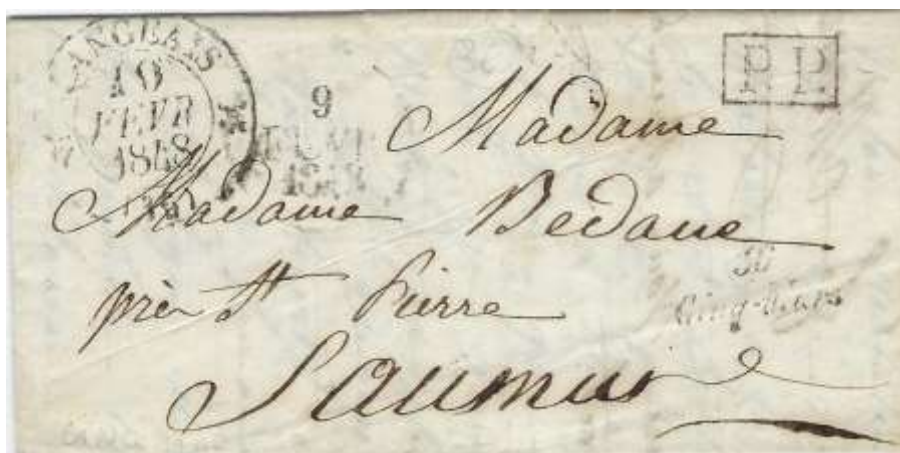 LANGEAIS
10
FEVR
1848
9
P.P.
Madame
Madame Bedane
près St Pierre
36
Cinq-Mars
Saumur